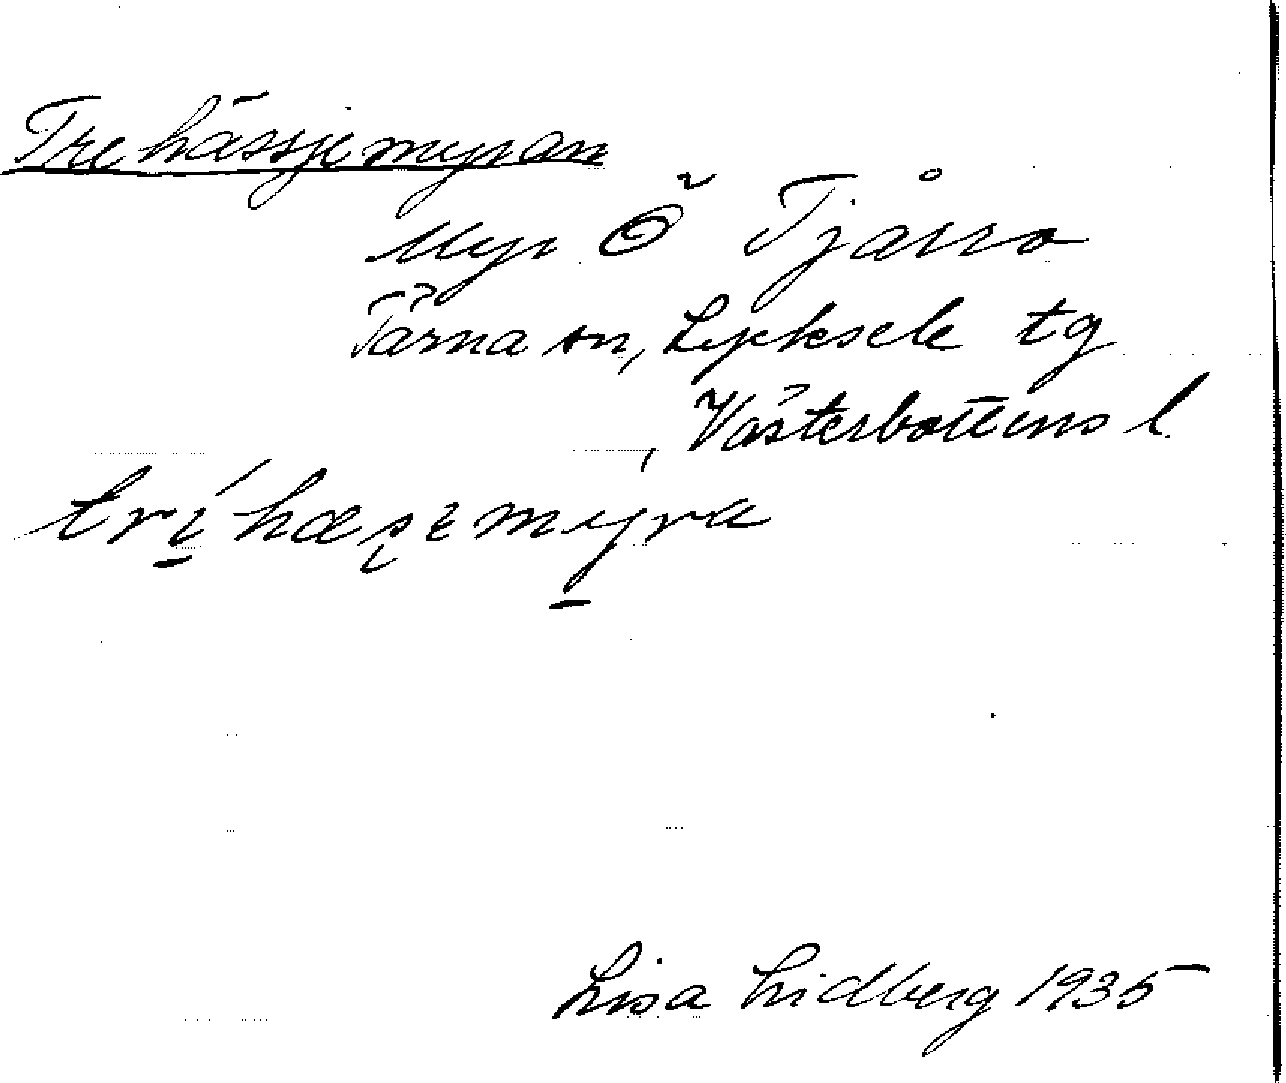 Trehässjemyran
Myr Ö Tjåsso
Tärna sn, Lycksele tg
Västerbottens l.
trí̱hæşεmy̱ra
Lisa Lidberg 1935